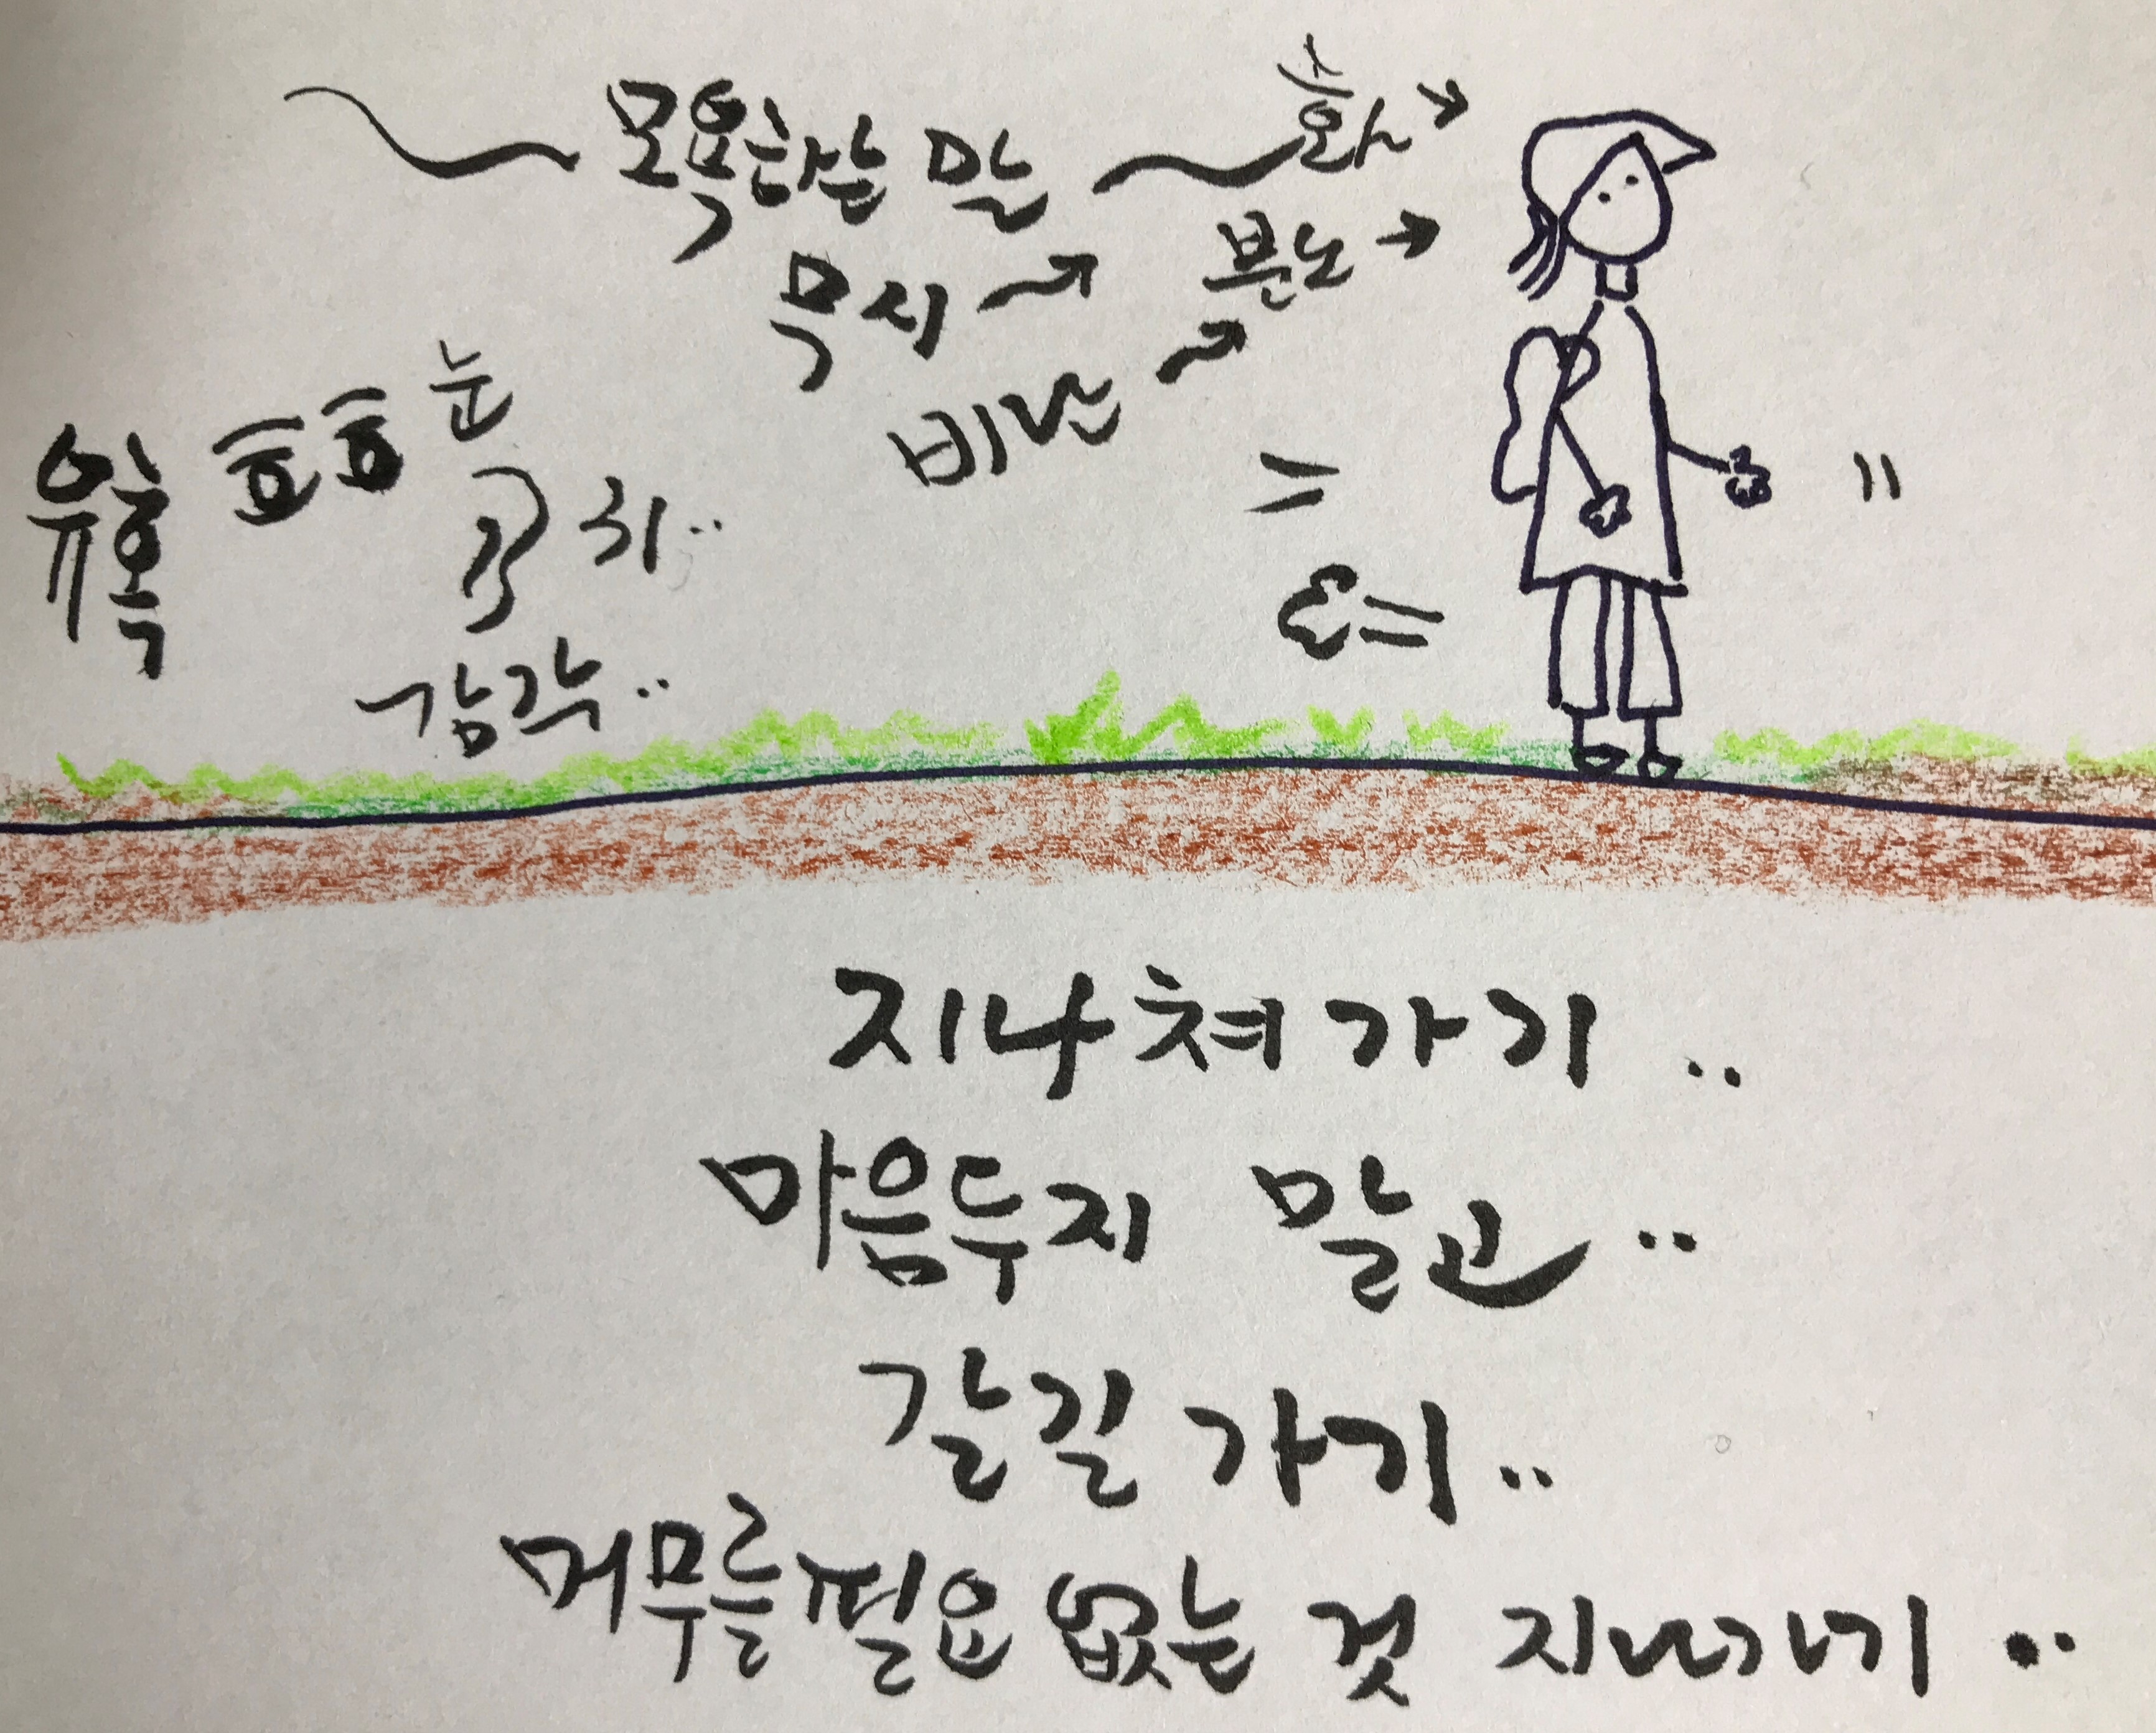 모욕하는 말 화
무시 분노
비난
유혹 흐흐 눈
귀..
감각..
지나쳐가기..
마음두지 말고..
갈길 가기..
머무를필요 없는 것 지나가기..